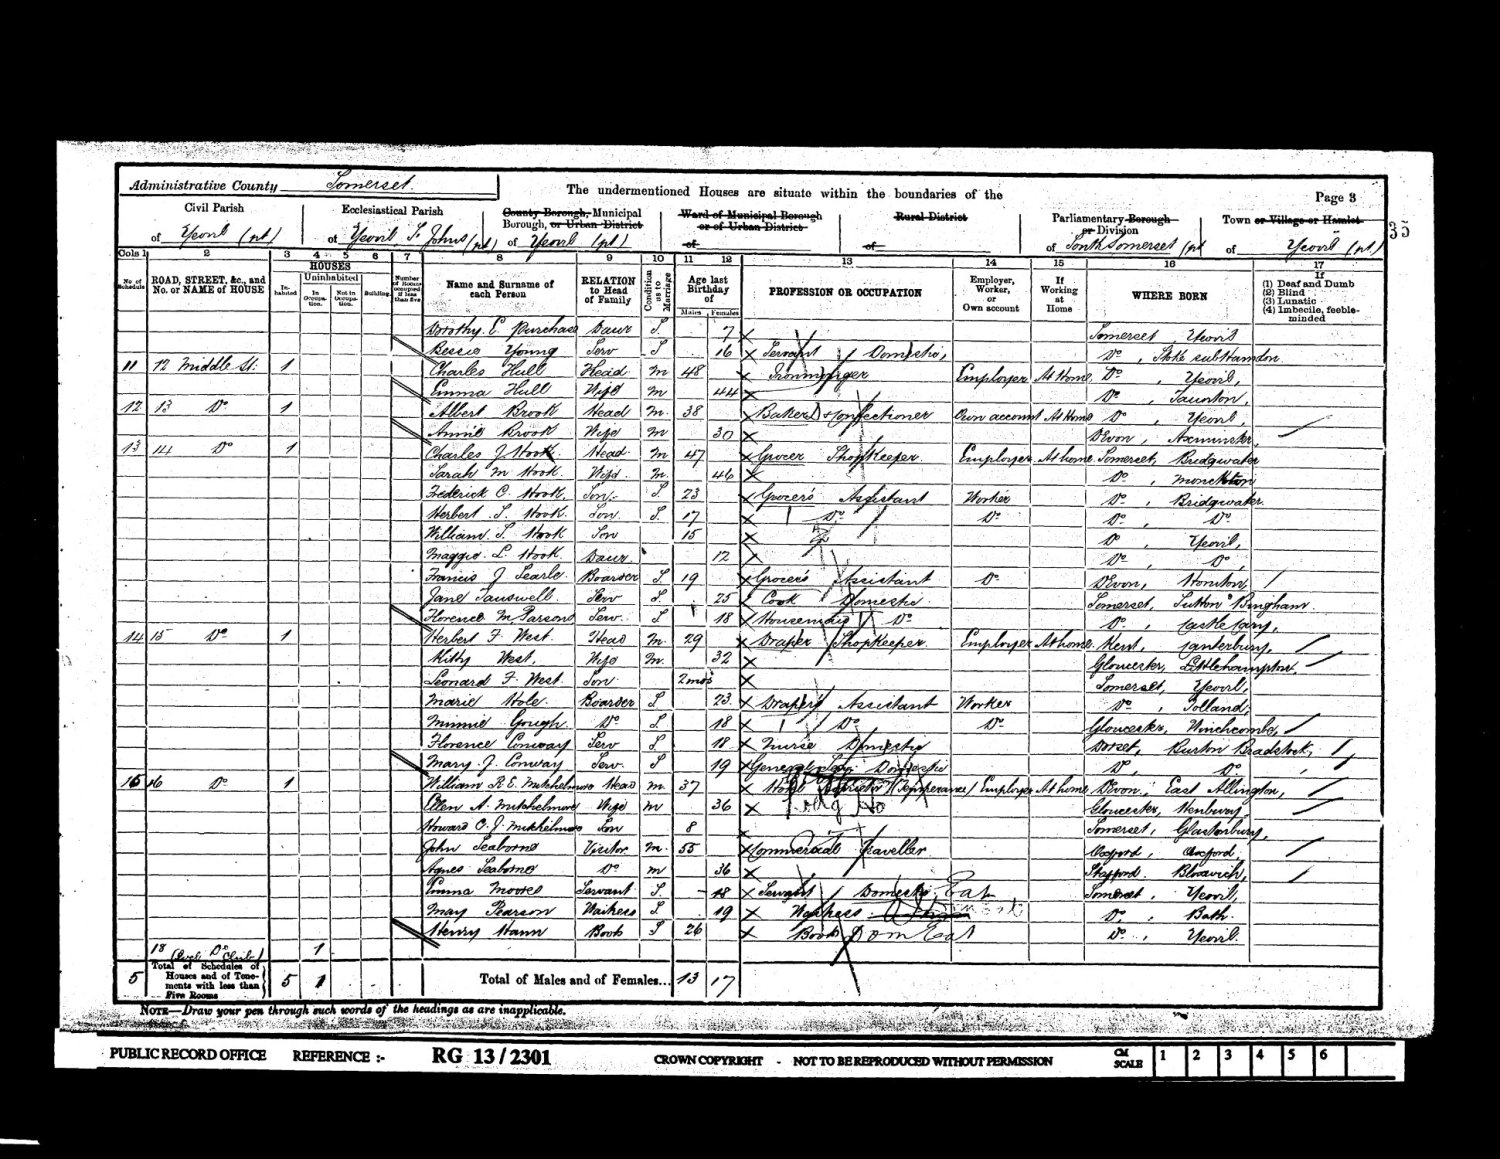 Administrative County Somerset.
The undermentioned Houses are situate within the boundaries of the
Page 3
35
Civil Parish
of Yeovil (pt)
Ecclesiastical Parish
of Yeovil, St Johns (pt)
County Borough, Municipal
Borough, or Urban District
of Yeovil (pt)
Ward of Municipal Borough
or of Urban District
of
Rural District
of
Parliamentary Borough
or Division
of South Somerset (pt
Town or Village or Hamlet
of Yeovil (pt)
Cols 1 2 3 4 5 6 7 8 9 10 11 12 13 14 15 16 17
No of Schedule
ROAD, STREET, &c., and No. or NAME of HOUSE
HOUSES
Inhabited
Uninhabited
In Occupation.
Not in Occupation.
Building.
Number of Rooms occupied if less than five
Name and Surname of each Person
RELATION to Head of Family
Condition as to Marriage
Age last Birthday of
Males Females
PROFESSION OR OCCUPATION
Employer, Worker, or Own account
If Working at Home
WHERE BORN
If
(1) Deaf and Dumb
(2) Blind
(3) Lunatic
(4) Imbecile, feeble-minded
Dorothy E Purchase Daur S. 7 Somerset Yeovil
Bessie Young Serv S 16 Servant Domestic, Do, Stoke sub Hamdon
11 12 Middle St: 1 Charles Hull Head M 48 Ironmonger Employer At Home Do, Yeovil,
Emma Hull Wife M 44 Do, Taunton,
12 13 Do 1 Albert Brook Head M. 38 Baker & Confectioner Own account At Home Do, Yeovil,
Annie Brook Wife M 30 Devon, Axminster,
13 14 Do 1 Charles J Hook Head M 47 Grocer Shopkeeper. Employer At home Somerset, Bridgwater
Sarah M Hook. Wife. M. 46 Do, Monckton
Frederick C. Hook, Son, S. 23 Grocer's Assistant Worker Do, Bridgwater.
Herbert S. Hook Son. S. 17 Do Do Do, Do.
William S. Hook Son 15 Do, Yeovil,
Maggie L. Hook Daur. 12 Do, Do,
Francis J Searle. Boarder S. 19 Grocer's Assistant Do Devon, Honiton,
Jane Sauswell. Serv S. 25 Cook Domestic Somerset, Sutton Bingham
Florence M Parsons Serv. S 18 Housemaid Do Do, Castle Cary,
14 15 Do 1 Herbert F West. Head M. 29 Draper Shopkeeper Employer At home. Kent, Canterbury,
Kitty West, Wife M. 32 Gloucester, Littlehampton,
Leonard F. West. Son 2 mos Somerset, Yeovil,
Marie Hole. Boarder S 23 Draper's Assistant Worker Do, Tolland,
Minnie Gough. Do S. 18 Do Do Gloucester, Winchcombe,
Florence Conway Serv S 18 Nurse Domestic Dorset, Burton Bradstock,
Mary. J. Conway Serv. S 19 General Domestic Do, Do
15 16 Do 1 William R E. Mitchelmore Head M. 37 Hotel Proprietor (Temperance) Employer At home Devon, East Allington,
Ellen A. Mitchelmore Wife M 36 Gloucester, Henbury,
Howard C. J. Mitchelmore Son 8 Somerset, Glastonbury,
John Seaborne Visitor M. 55 Commercial Traveller Oxford, Oxford
Agnes Seaborne Do M 36 Stafford Bloxwich,
Emma Moores Servant S. 18 Servant Domestic Eat Somerset, Yeovil,
May Pearson Waitress S. 19 Waitress Do, Bath.
Henry Hann Boots S 26 Boots Dom Eat Do, Yeovil.
18 Do 1
(Club)
5 Total of Schedules of Houses and of Tenements with less than Five Rooms 5 1 Total of Males and of Females... 13 17
NOTE—Draw your pen through such words of the headings as are inapplicable.
PUBLIC RECORD OFFICE REFERENCE :- RG 13/2301 CROWN COPYRIGHT - NOT TO BE REPRODUCED WITHOUT PERMISSION CM SCALE 1 2 3 4 5 6